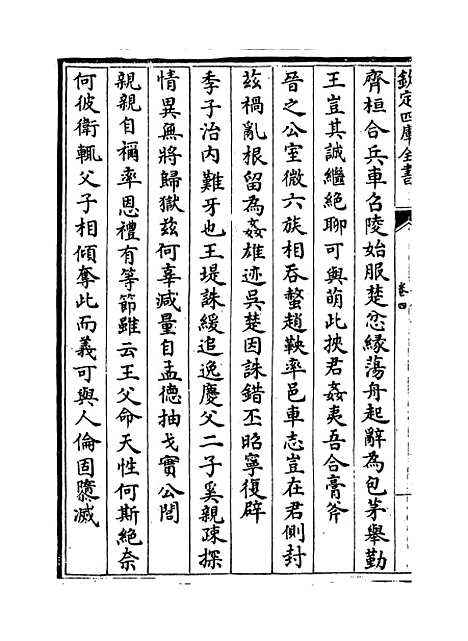 欽定四庫全書
卷四
齊桓合兵車召陵始服楚忿緣蕩舟起辭為包茅舉勤
王豈其誠繼絕聊可與萌此挾君姦夷吾合膏斧
晉之公室微六族相吞螫趙鞅率邑車志豈在君側封
兹禍亂根留為姦雄迹吳楚因誅錯丕昭寧復辟
季子治内難牙也王堤誅緩追逸慶父二子奚親疎探
情異無將歸獄兹何辜減量自孟德抽戈實公閭
親親自禰率恩禮有等節雖云王父命天性何斯絶奈
何彼衛輒父子相傾奪此而義可與人倫固隳滅